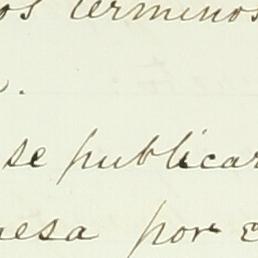 os terminos
se publicar
esa por e